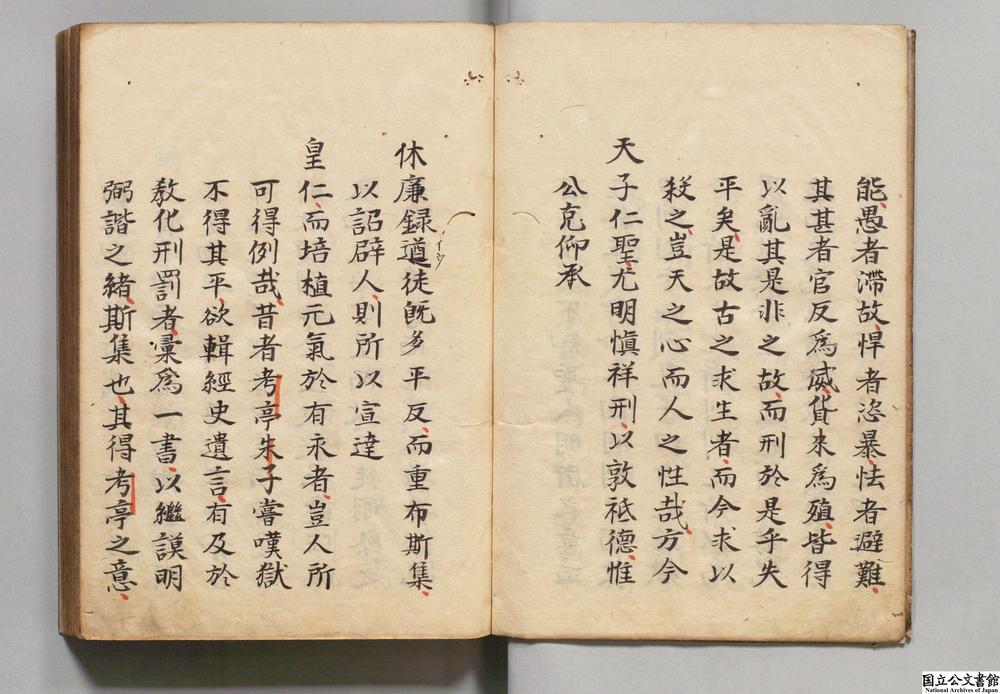 能愚者滯故悍者恣暴怯者避難
其甚者官反爲威貨來爲殖皆得
以亂其是非之故而刑於是乎失
平矣是故古之求生者而今求以
殺之豈天之心而人之性哉方今
天子仁聖尤明愼祥刑以敦祗德惟
公克仰承
休廉録遒徒旣多平反而重布斯集
イウ
以詔辟人則所以宣達
皇仁而培植元氣於有永者豈人所
可得例哉昔者考亭朱子嘗嘆獄
不得其平欲輯經史遺言有及於
敎化刑罰者彙爲一書以繼謨明
弼諧之緒斯集也其得考亭之意
国立公文書館
National Archives of Japan